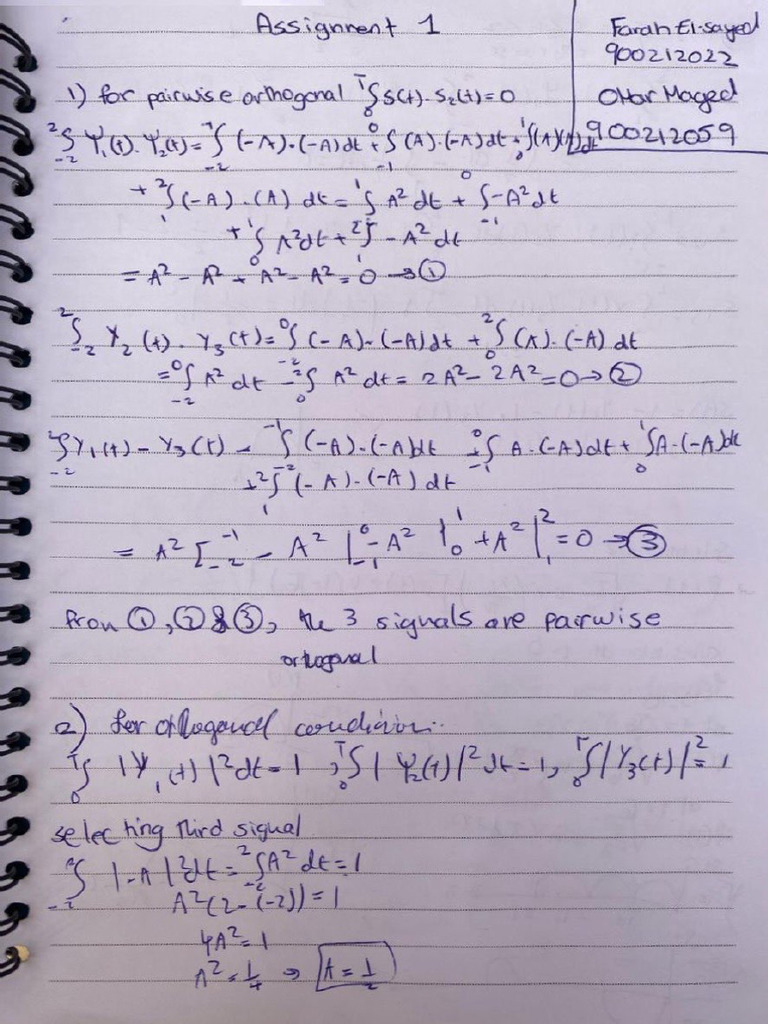 Assignment 1
Farah El-sayed
900212022
Omar Maged
900212059
1) for pairwise orthogonal ᵀ∫₀ S(t).S₂(t)=0
²∫₋₂ Ψ₁(t).Ψ₂(t)= ⁻¹∫₋₂ (-A).(-A)dt + ⁰∫₋₁ (A).(-A)dt + ¹∫₀(A)(A)dt
+ ²∫₁ (-A).(A) dt = ¹∫ A² dt + ⁰∫₋₁ -A² dt
+ ¹∫₀ A²dt + ²∫₁ -A² dt
= A² - A² + A² - A² = 0 → ①
²∫₋₂ Y₂(t). Y₃(t)= ⁰∫₋₂ (-A).(-A)dt + ²∫₀ (A).(-A) dt
= ⁰∫₋₂ A² dt - ²∫₀ A² dt = 2A² - 2A² = 0 → ②
²∫₋₂ Y₁(t) - Y₃(t) - ⁻¹∫ (-A).(-A)dt + ⁰∫₋₁ A.(-A)dt + ¹∫₀ A.(-A)dt
+ ²∫₁ (-A).(-A) dt
= A² [₋₂⁻¹ - A² |₋₁⁰ - A² |₀¹ + A² |₁² = 0 → ③
from ①, ② & ③, the 3 signals are pairwise
orthogonal
2) for orthogonal condition:.
ᵀ∫₀ |Ψ₁(t)|² dt = 1, ᵀ∫₀ |Ψ₂(t)|² dt = 1, ᵀ∫ |Y₃(t)|² = 1
selecting third signal
²∫₋₂ |-A|² dt = ²∫₋₂ A² dt = 1
A²(2-(-2)) = 1
4A² = 1
A² = 1/4 ⇒ A = 1/2